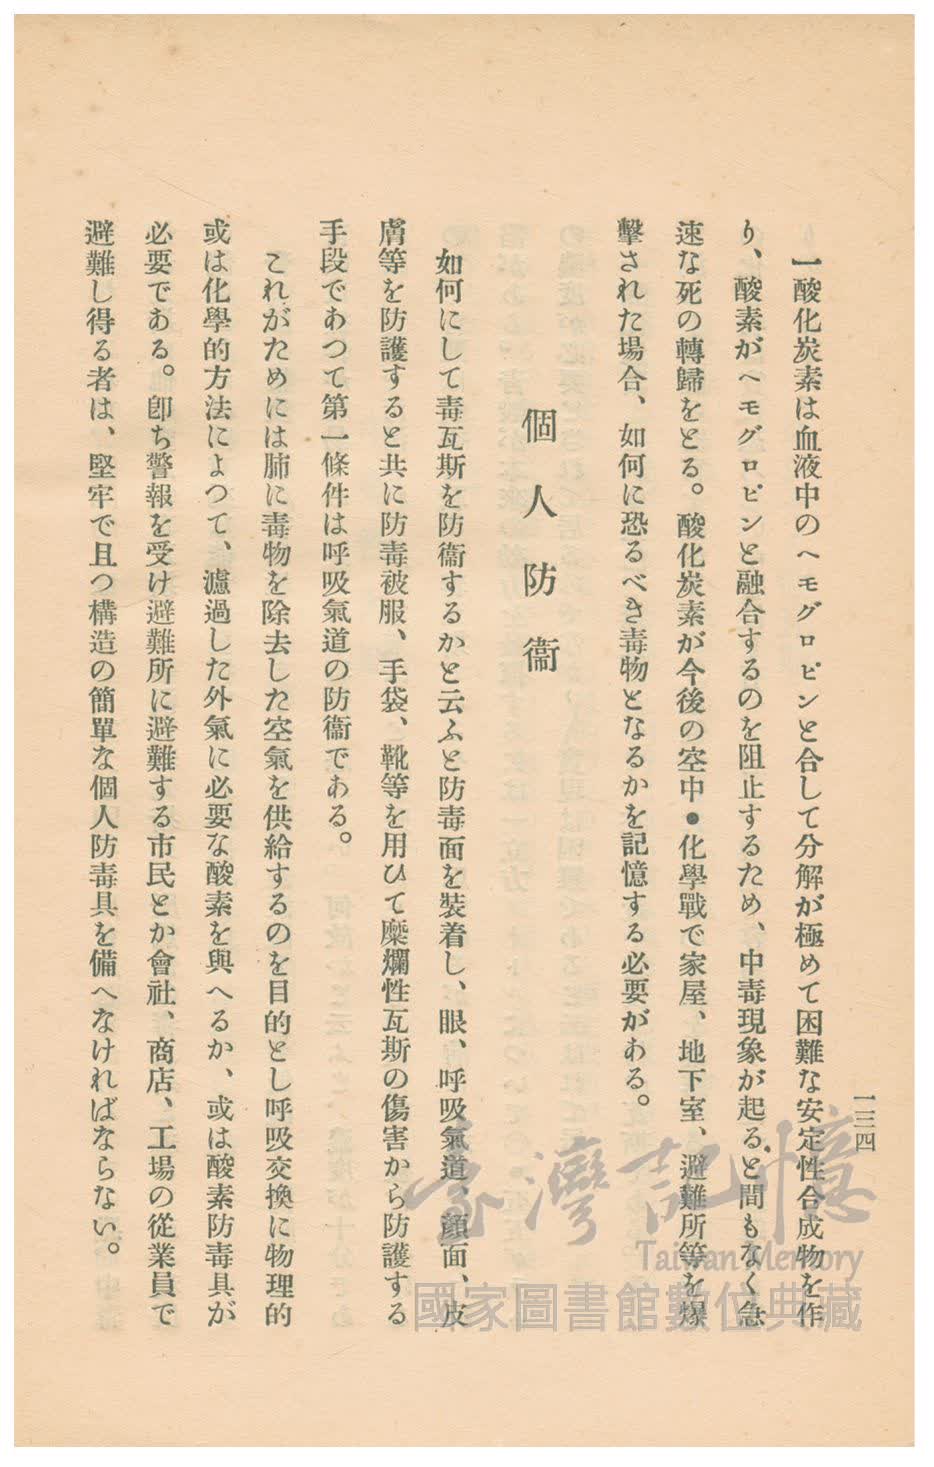 一酸化炭素は血液中のヘモグロビンと合して分解が極めて困難な安定性合成物を作
り、酸素がヘモグロビンと融合するのを阻止するため、中毒現象が起ると間もなく急
速な死の轉歸をとる。酸化炭素が今後の空中●化學戰で家屋、地下室、避難所等を爆
擊された場合、如何に恐るべき毒物となるかを記憶する必要がある。
個人防衞
如何にして毒瓦斯を防衞するかと云ふと防毒面を裝着し、眼、呼吸氣道、顏面、皮
膚等を防護すると共に防毒被服、手袋、靴等を用ひて糜爛性瓦斯の傷害から防護する
手段であつて第一條件は呼吸氣道の防衞である。
これがためには肺に毒物を除去した空氣を供給するのを目的とし呼吸交換に物理的
或は化學的方法によつて、濾過した外氣に必要な酸素を與へるか、或は酸素防毒具が
必要である。卽ち警報を受け避難所に避難する市民とか會社、商店、工場の從業員で
避難し得る者は、堅牢で且つ構造の簡單な個人防毒具を備へなければならない。
一三四
臺灣記憶
Taiwan Memory
國家圖書館數位典藏